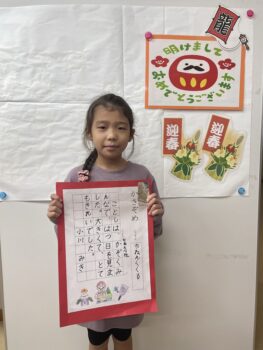 明けまして
おめでとうございます
迎春
迎春
かきぞめ
ことしは、かぞくみ
んなで、はつ日を見ま
した。大きくて、とて
もきれいでした。
小川 みき